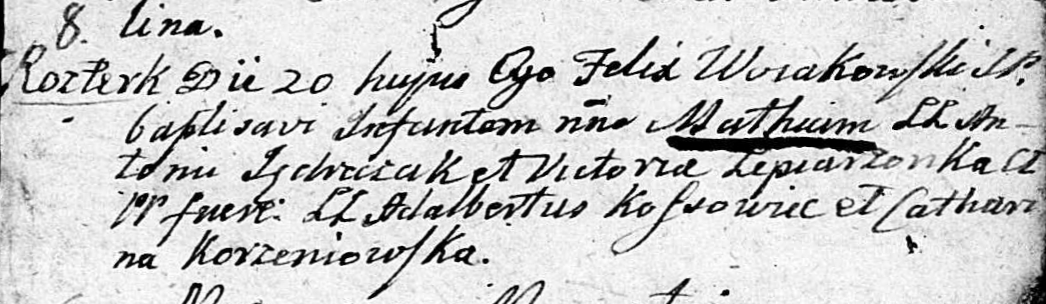 8. lina.
Rozterk Die 20 hujus Ego Felix Worakowski
baptisavi Infantem nne Mathiam LL An-
tonii Jędrzczak et Victoria Lepiarzonka CC
PP fuere: LL Adalbertus Kossowiec et Cathari
na Korzeniowska.